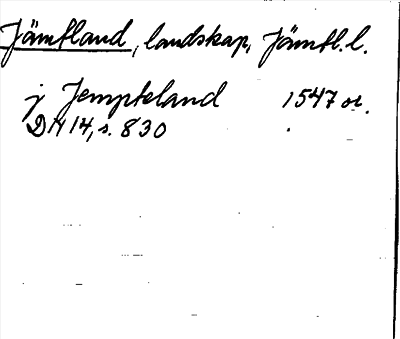 Jämtland, landskap, Jämtl. l.
j Jempteland 1547 or.
DN 14, s. 830